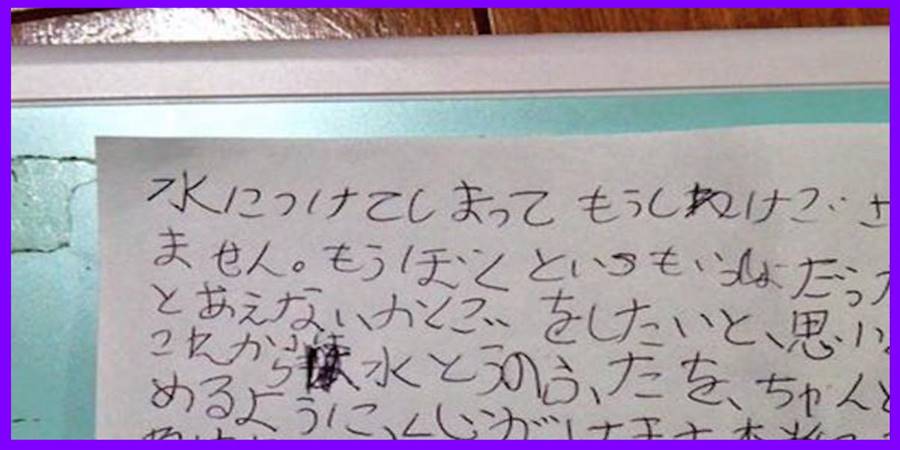 水につけてしまって もうしわけござ
ません。もうぼくと いつもいっしょだっ
とあえないかくごをしたいと、思い
これからは、水とうのふたを、ちゃんと
めるように、くじが